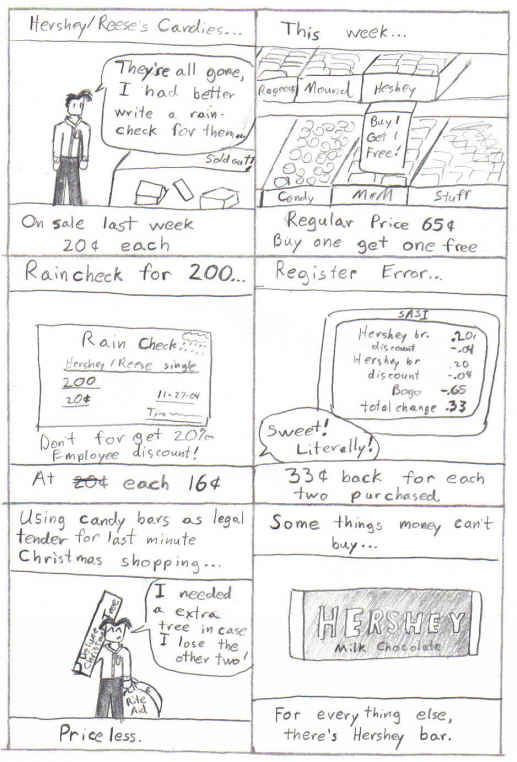 Hershey/Reese's Candies...
They're all gone,
I had better
write a rain-
check for them.
Sold out!
On sale last week
20¢ each
This week...
Rageous
Mound
Heshey
Buy 1
Get 1
Free!
Candy
M&M
Stuff
Regular Price 65¢
Buy one get one free
Raincheck for 200...
Rain Check
Hershey/Reese single
200
20¢
11-27-04
Don't for get 20%
Employee discount!
At 20¢ each 16¢
Register Error...
SASI
Hershey br. .20
discount -.04
Hershey br .20
discount -.04
Bogo -.65
total change .33
Sweet!
Literally!
33¢ back for each
two purchased
Using candy bars as legal
tender for last minute
Christmas shopping...
Deluxe
Christmas Tree
I needed
a extra
tree in case
I lose the
other two!
Rite
Aid
Priceless.
Some things money can't
buy...
HERSHEY
Milk Chocolate
For every thing else,
there's Hershey bar.